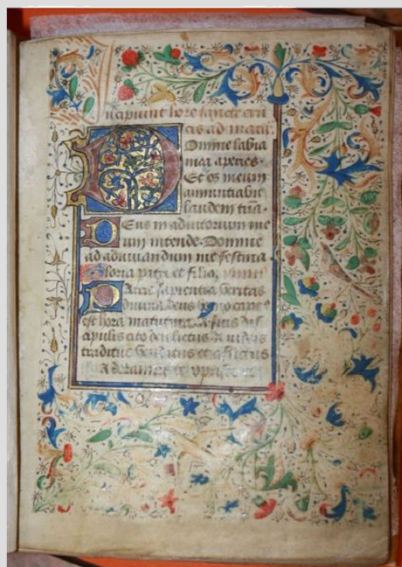 Incipiunt hore sancte cru
cis ad matut
Domine labia
mea aperies.
Et os meum
annuntiabit
laudem tuã.
Deus in adiutorium me
um intende. Domine
ad adiuuandum me festina
Gloria patri et filio
Patris sapientia veritas
diuina deus homo captus
est hora matutina. A suis dis
cipulis cito derelictus a iudeis
traditus venditus et afflictus